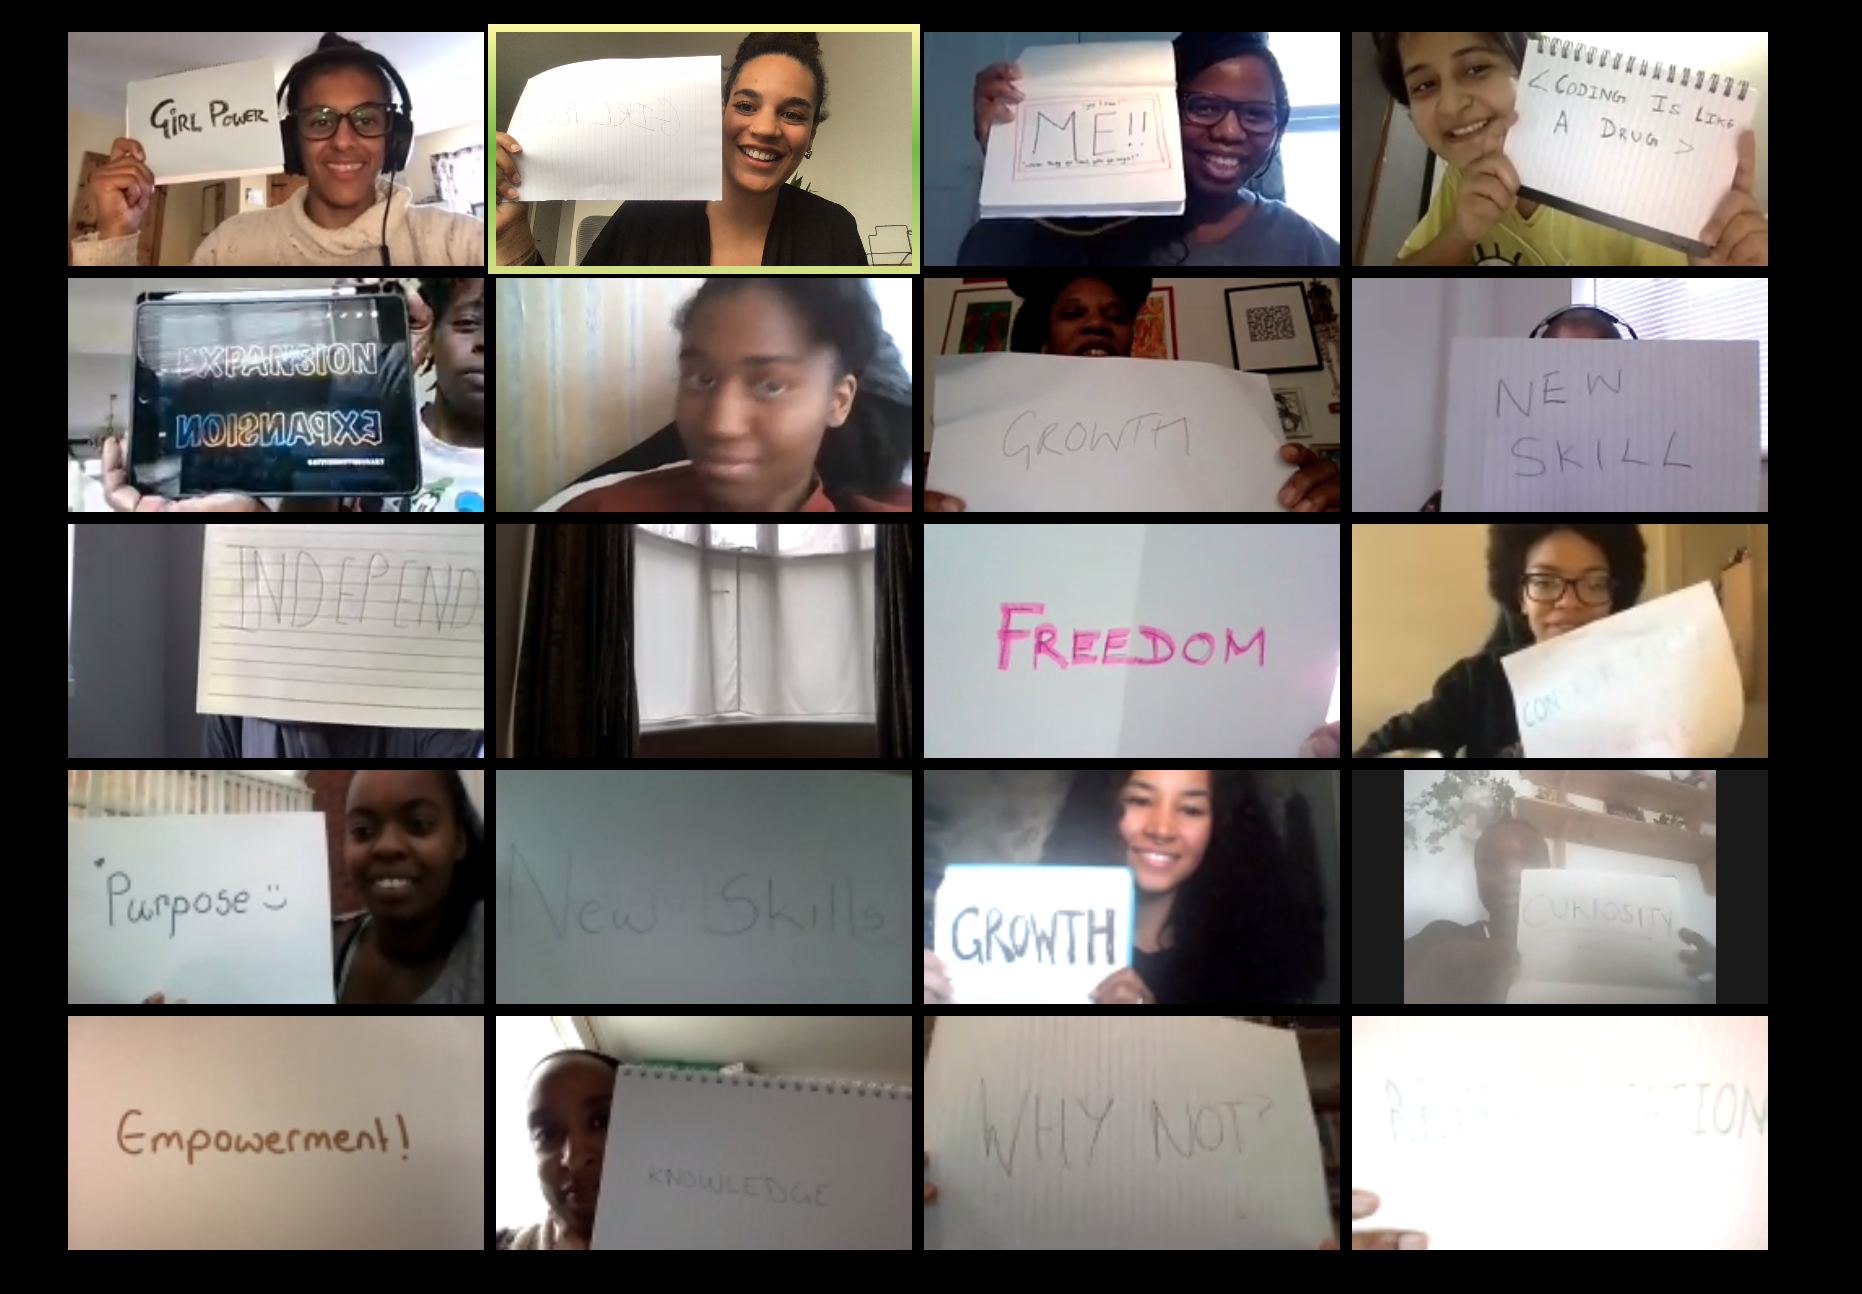 GIRL POWER
GIRL
ME!!
< CODING IS LIKE
A DRUG >
EXPANSION
EXPANSION
GROWTH
NEW
SKILL
INDEPEND
FREEDOM
Purpose
New Skills
GROWTH
CURIOSITY
Empowerment!
KNOWLEDGE
WHY NOT?